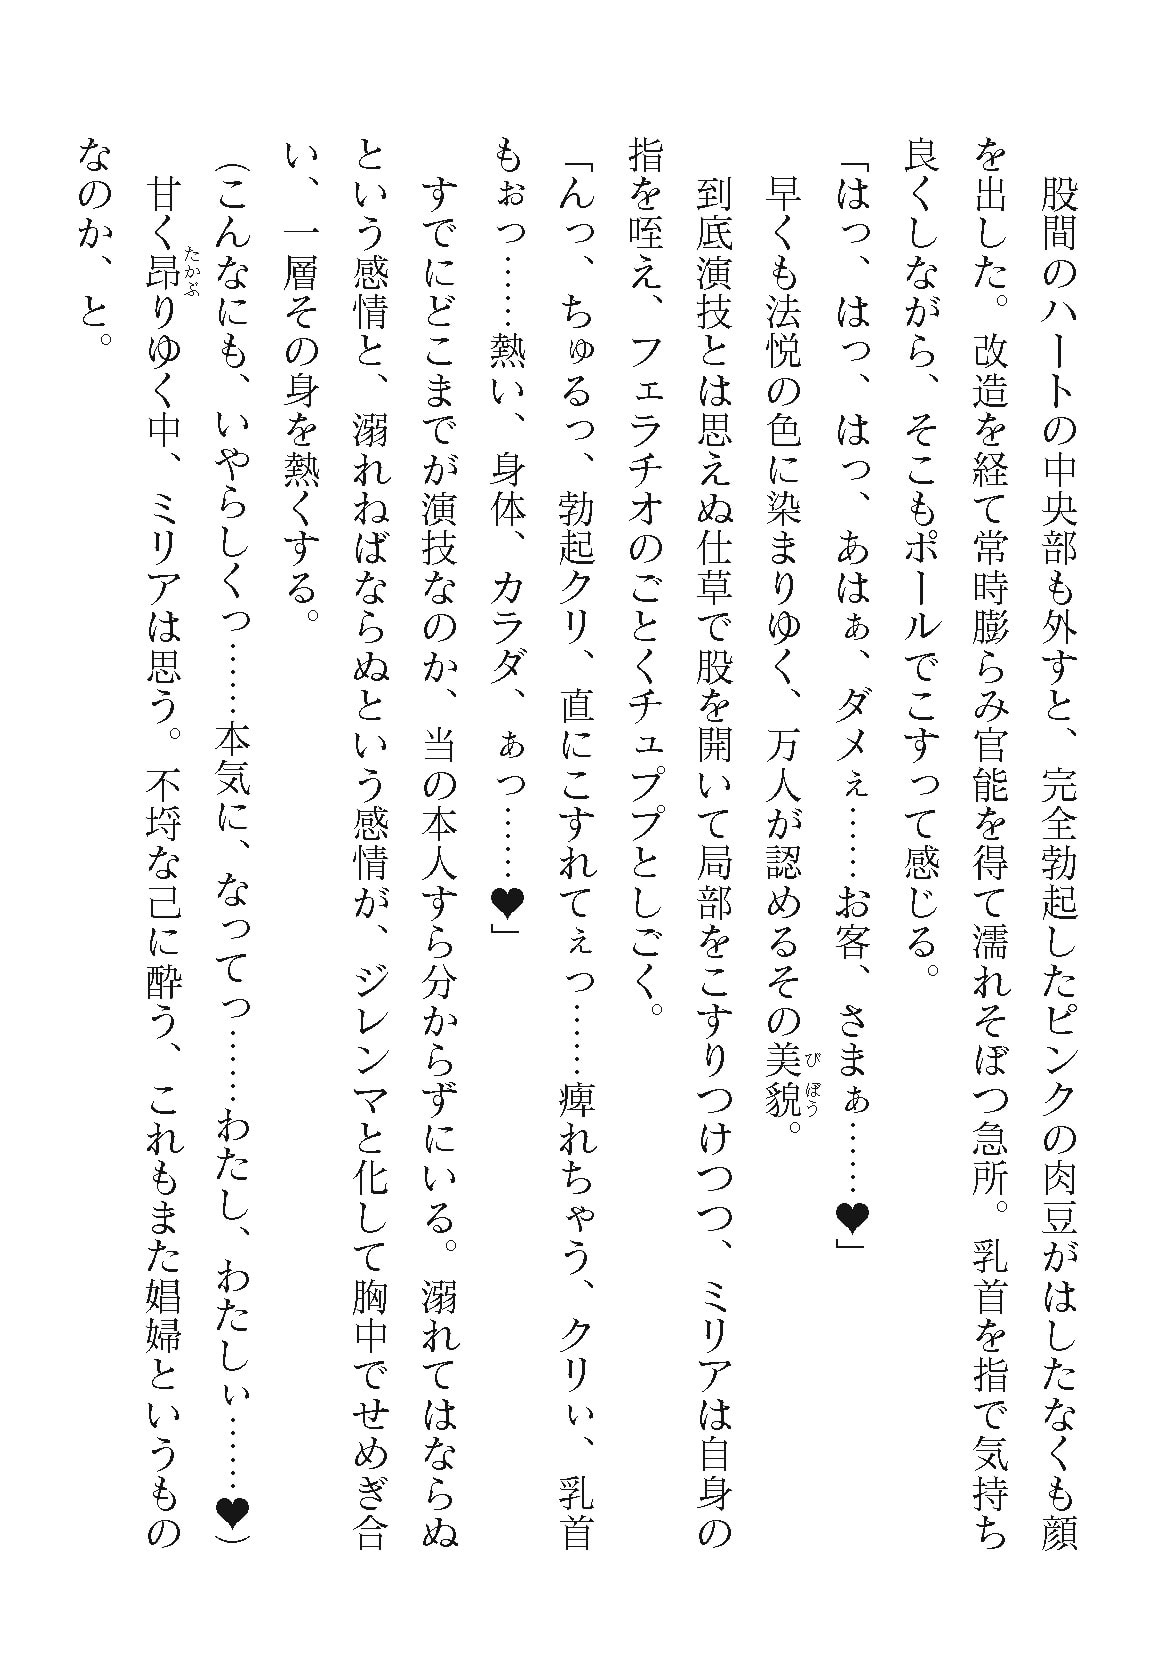 股間のハートの中央部も外すと、完全勃起したピンクの肉豆がはしたなくも顔
を出した。改造を経て常時膨らみ官能を得て濡れそぼつ急所。乳首を指で気持ち
良くしながら、そこもポールでこすって感じる。
「はっ、はっ、はっ、あはぁ、ダメぇ……お客、さまぁ……♥」
　早くも法悦の色に染まりゆく、万人が認めるその美貌。
　到底演技とは思えぬ仕草で股を開いて局部をこすりつけつつ、ミリアは自身の
指を咥え、フェラチオのごとくチュププとしごく。
「んっ、ちゅるっ、勃起クリ、直にこすれてぇっ……痺れちゃう、クリぃ、乳首
もぉっ……熱い、身体、カラダ、ぁっ……♥」
　すでにどこまでが演技なのか、当の本人すら分からずにいる。溺れてはならぬ
という感情と、溺れねばならぬという感情が、ジレンマと化して胸中でせめぎ合
い、一層その身を熱くする。
（こんなにも、いやらしくっ……本気に、なってっ……わたし、わたしぃ……♥）
　甘く昂りゆく中、ミリアは思う。不埒な己に酔う、これもまた娼婦というもの
なのか、と。